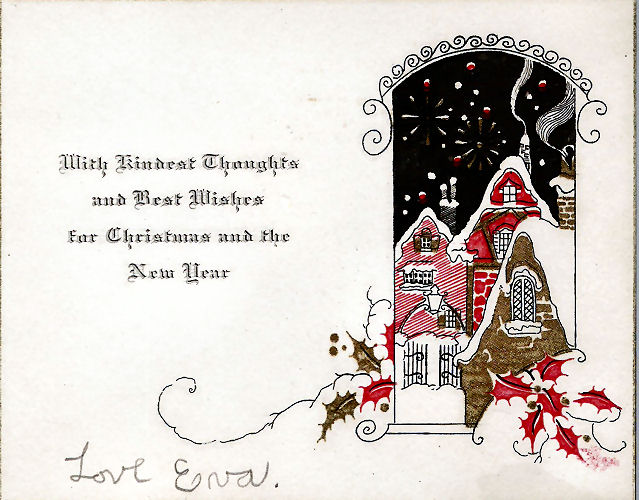 With Kindest Thoughts
and Best Wishes
for Christmas and the
New Year
Love Eva.